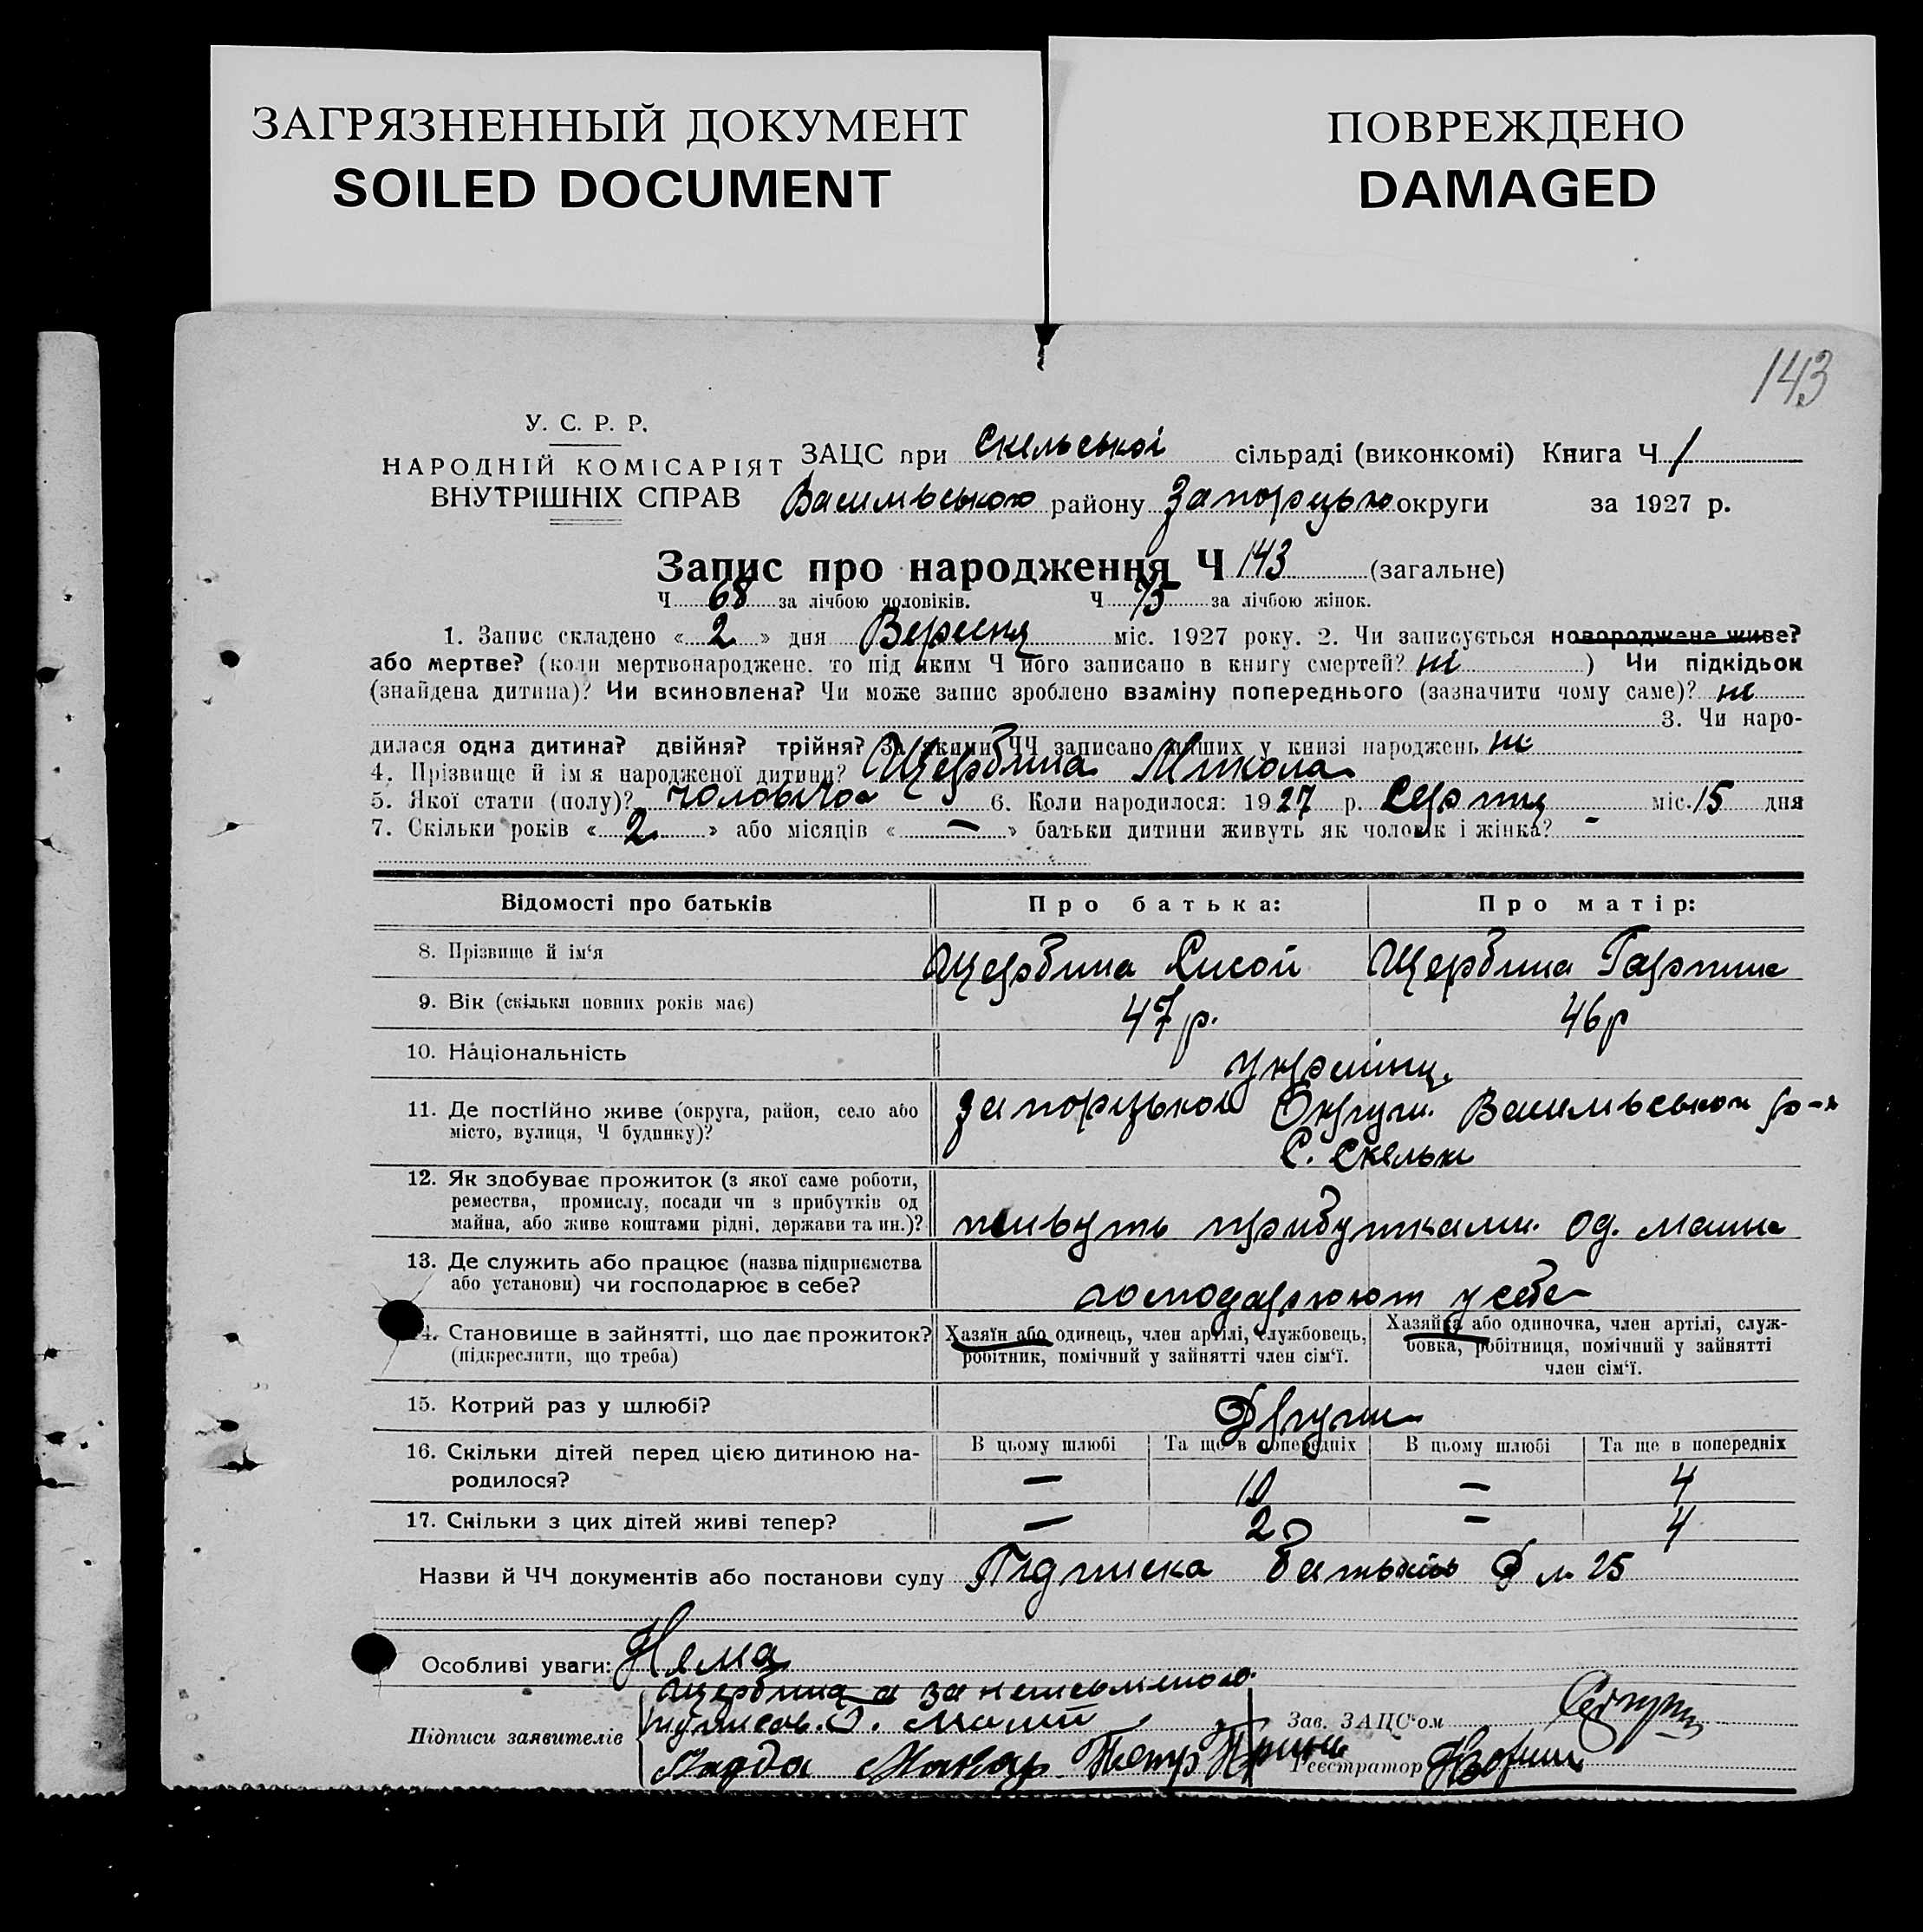 ЗАГРЯЗНЕННЫЙ ДОКУМЕНТ
SOILED DOCUMENT
ПОВРЕЖДЕНО
DAMAGED
143
У. С. Р. Р.
НАРОДНІЙ КОМІСАРІЯТ
ВНУТРІШНІХ СПРАВ
ЗАЦС при Скельській сільраді (виконкомі) Книга Ч 1
Васильвського району Запорізької округи за 1927 р.
Запис про народження Ч 143 (загальне)
Ч 68 за лічбою чоловіків. Ч 75 за лічбою жінок.
1. Запис складено « 2 » дня Вересня міс. 1927 року. 2. Чи записується новороджене живе?
або мертве? (коли мертвонароджене. то під яким Ч його записано в книгу смертей? ні ) Чи підкідьок
(знайдена дитина)? Чи всиновлена? Чи може запис зроблено взаміну попереднього (зазначити чому саме)? ні
3. Чи наро-
дилася одна дитина? двійня? трійня? За якими ЧЧ записано інших у книзі народжень ні
4. Прізвище й ім я народженої дитини? Щербина Микола
5. Якої стати (полу)? чоловічоі 6. Коли народилося: 1927 р. Серпня міс. 15 дня
7. Скільки років « 2 » або місяців « — » батьки дитини живуть як чоловік і жінка? -
Відомості про батьків
Про батька:
Про матір:
8. Прізвище й ім‘я
Щербина Сисой
Щербина Гарпина
9. Вік (скільки повних років має)
47 р.
46 р
10. Національність
Українц.
11. Де постійно живе (округа, район, село або
місто, вулиця, Ч будинку)?
Запорізькои Округи. Васильвськои р-н
С. Скельки
12. Як здобуває прожиток (з якої саме роботи,
ремества, промислу, посади чи з прибутків од
майна, або живе коштами рідні, держави та ин.)?
живуть прибутками од. маина
13. Де служить або працює (назва підприємства
або установи) чи господарює в себе?
господарюют у себе
4. Становище в зайнятті, що дає прожиток?
(підкреслити, що треба)
Хазяїн або одинець, член артілі, службовець,
робітник, помічний у зайнятті член сім‘ї.
Хазяйка або одиночка, член артілі, служ-
бовка, робітниця, помічний у зайнятті
член сім‘ї.
15. Котрий раз у шлюбі?
Другий
16. Скільки дітей перед цією дитиною на-
родилося?
В цьому шлюбі
Та ще в попередніх
В цьому шлюбі
Та ще в попередніх
—
10
—
4
17. Скільки з цих дітей живі тепер?
—
2
-
4
Назви й ЧЧ документів або постанови суду Підписка батьків Д № 25
Особливі уваги: Нема
Щербина а за неписьменого
підписав. О. Малий
Підписи заявителів
Макар Петр
Зав. ЗАЦС‘ом
Реєстратор